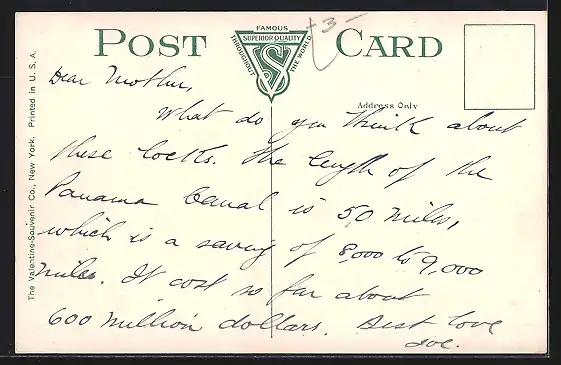 FAMOUS
SUPERIOR QUALITY
THROUGHOUT THE WORLD
VS
POST CARD
+3-
Address Only
The Valentine-Souvenir Co., New York. Printed in U. S. A.
Dear Mother,
What do you think about
these locks. The length of the
Panama Canal is 50 miles,
which is a saving of 8,000 to 9,000
miles. It cost so far about
600 million dollars. Best love
Joe.